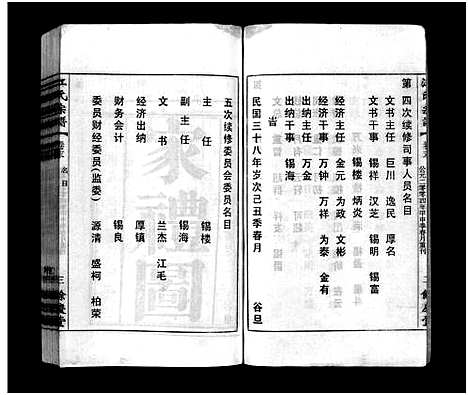 第四次续修司事人员名目
文书主任 巨川 逸民 厚名
文书干事 锡祥 汉芝 锡明 锡富
锡楼 炳炎
经济主任 金元 为政 文彬
经济干事 万钟 万祥 为泰 金有
出纳主任 万金
出纳干事 锡海
民国三十八年岁次己丑季春月
吉
谷旦
五次续修委员会委员名目
主任 锡楼
副主任 锡海
文书 兰杰 江毛
经济出纳 厚镇
财务会计 锡良
委员财经委员(监委) 源清 盛柯 柏荣
公元二零零四年甲申季春月重刊
江氏宗谱
名目
三 余庆堂